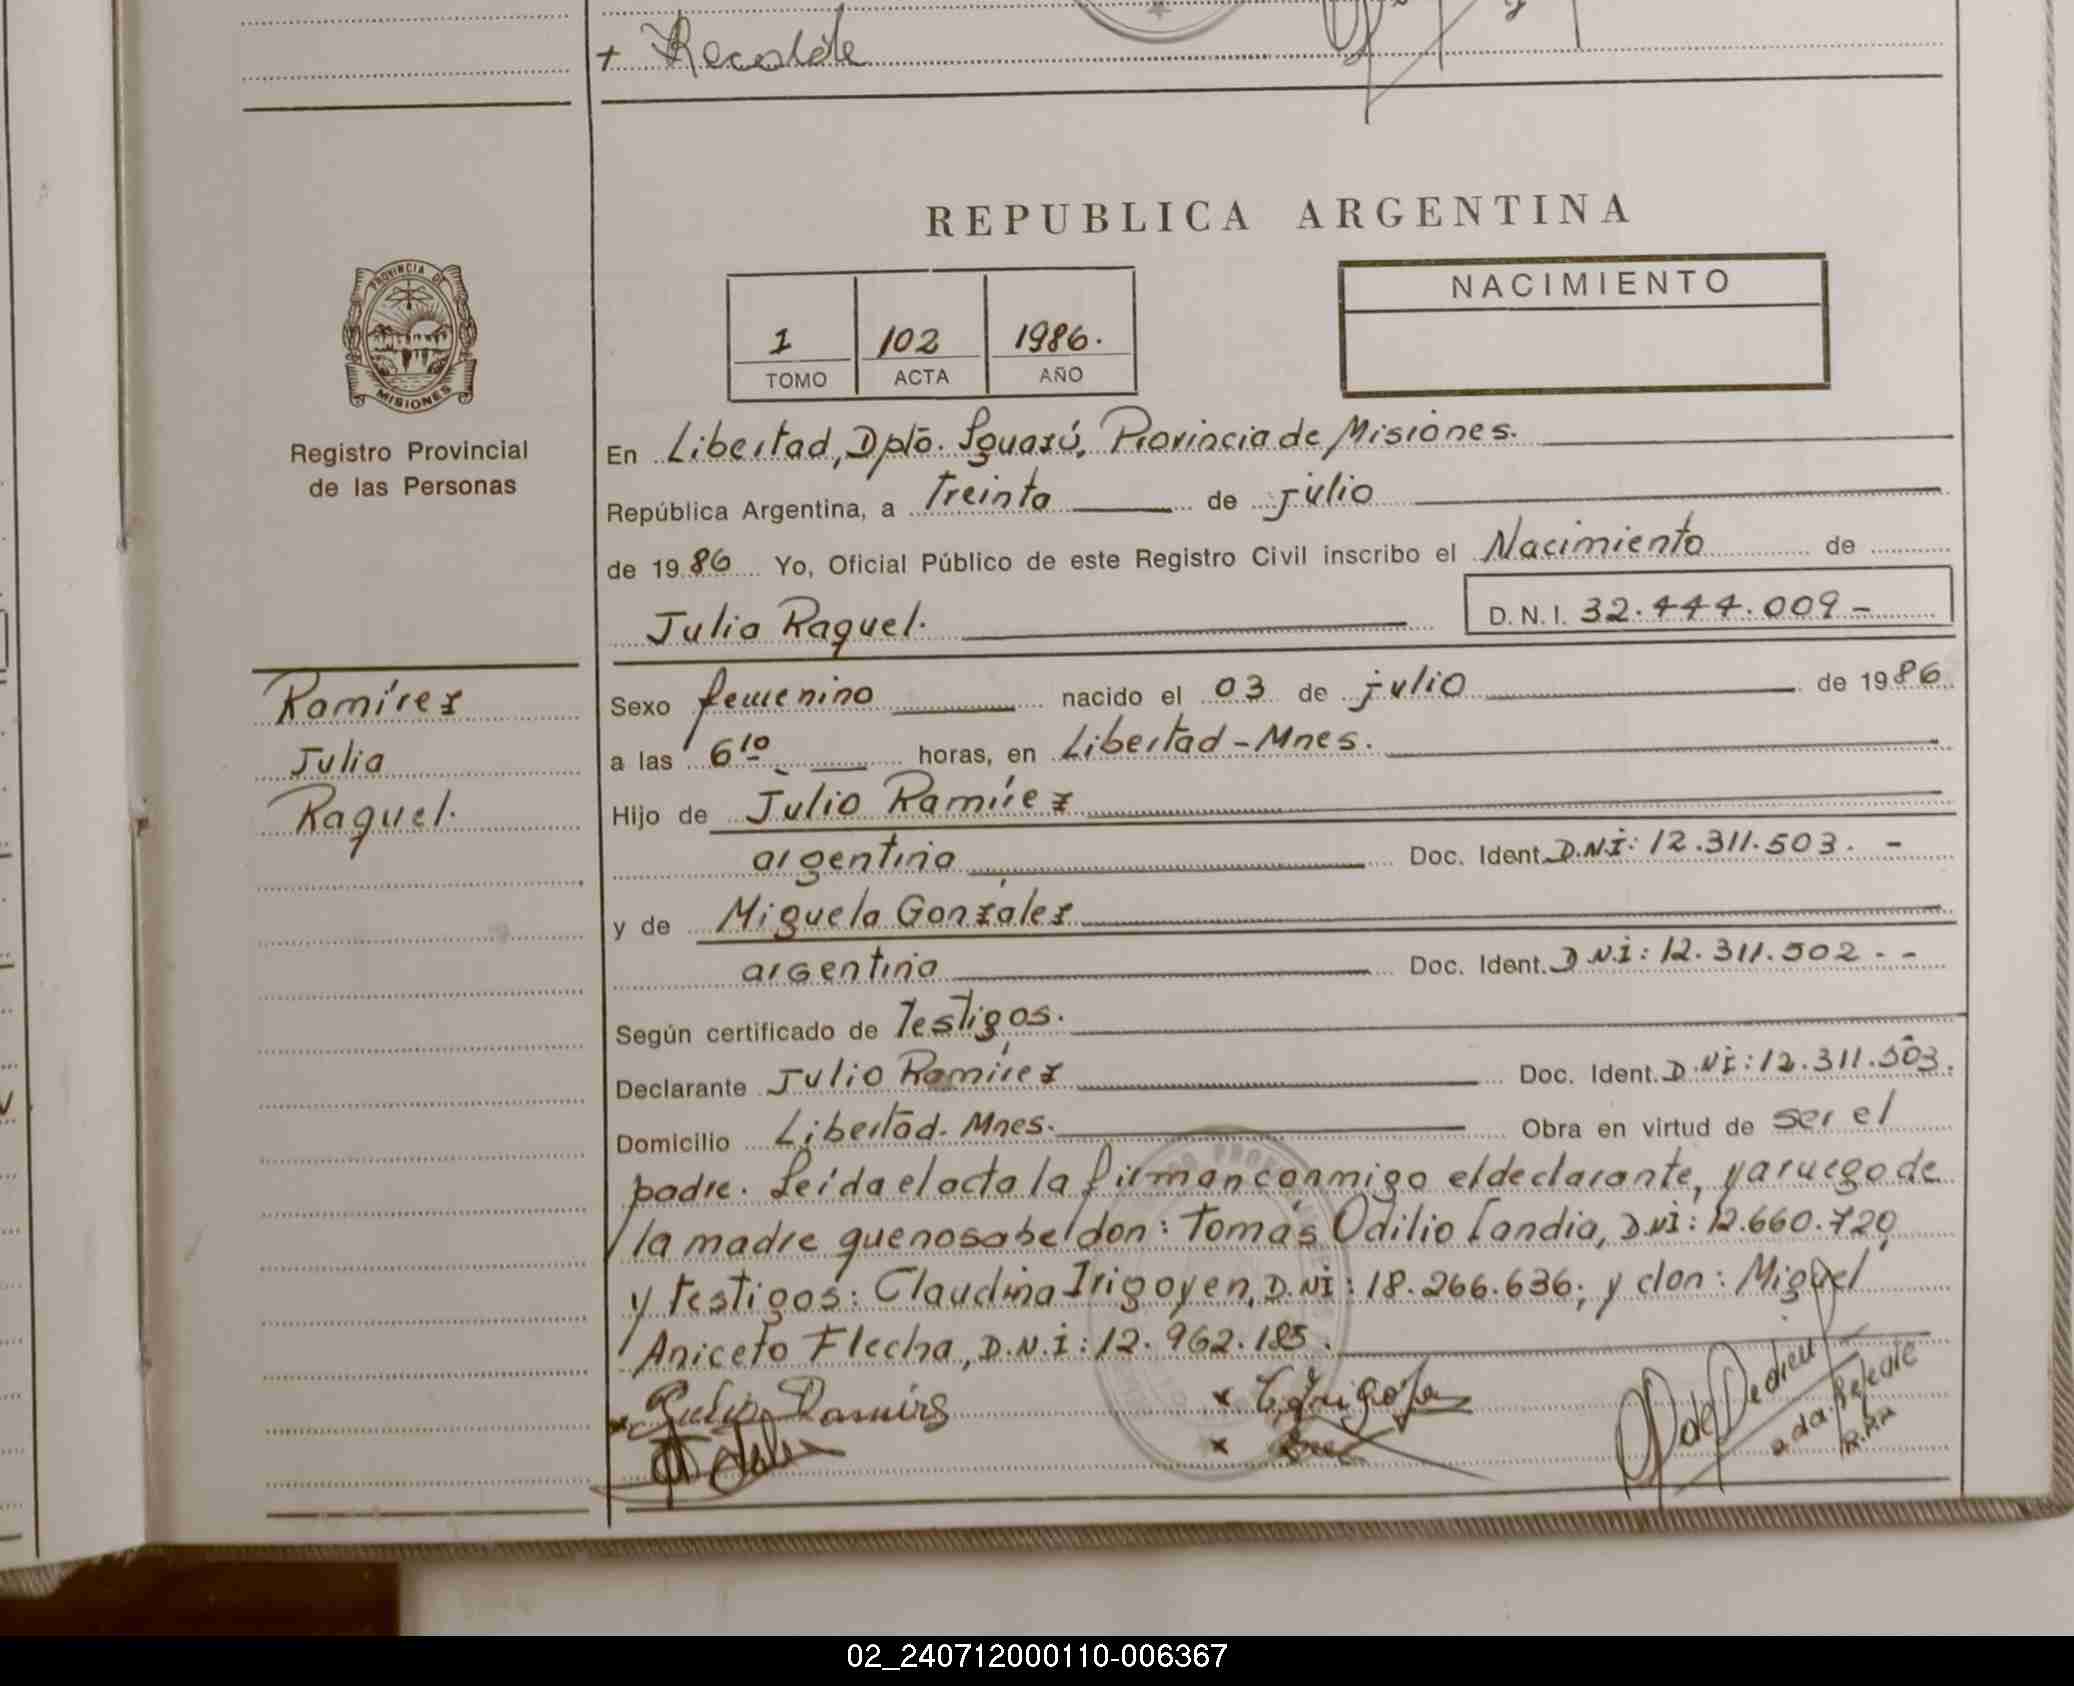 + Recalde
REPUBLICA ARGENTINA
PROVINCIA DE
MISIONES
Registro Provincial
de las Personas
1 102 1986.
TOMO ACTA AÑO
NACIMIENTO
En Libertad, Dpto. Iguazú, Provincia de Misiones.
República Argentina, a Treinta de julio
de 1986 Yo, Oficial Público de este Registro Civil inscribo el Nacimiento de
Julia Raquel. D.N.I. 32.444.009-
Ramírez
Julia
Raquel.
Sexo femenino nacido el 03 de julio de 1986
a las 6 10 horas, en Libertad - Mnes.
Hijo de Julio Ramírez
argentina Doc. Ident. D.N.I: 12.311.503. -
y de Miguela González
argentina Doc. Ident. D.N.I: 12.311.502 - -
Según certificado de Testigos.
Declarante Julio Ramírez Doc. Ident. D.NI: 12.311.503.
Domicilio Libertad. Mnes. Obra en virtud de ser el
padre. Leída el acta la firman conmigo el declarante, y a ruego de
la madre que no sabe/don: Tomás Odilio Candia, D.NI: 12.660.720
y testigos: Claudina Irigoyen, D.NI: 18.266.636; y don: Miguel
Aniceto Flecha, D.N.I: 12.962.185.
Julio Ramirs
02_240712000110-006367